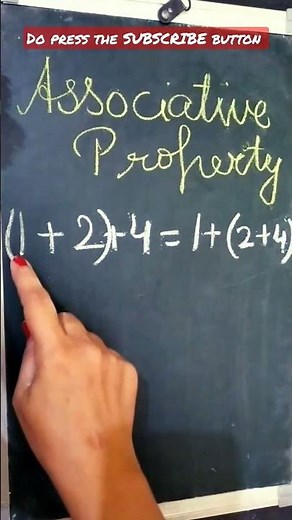 DO PRESS THE SUBSCRIBE BUTTON
Associative
Property
(1 + 2)+4 = 1+(2+4)